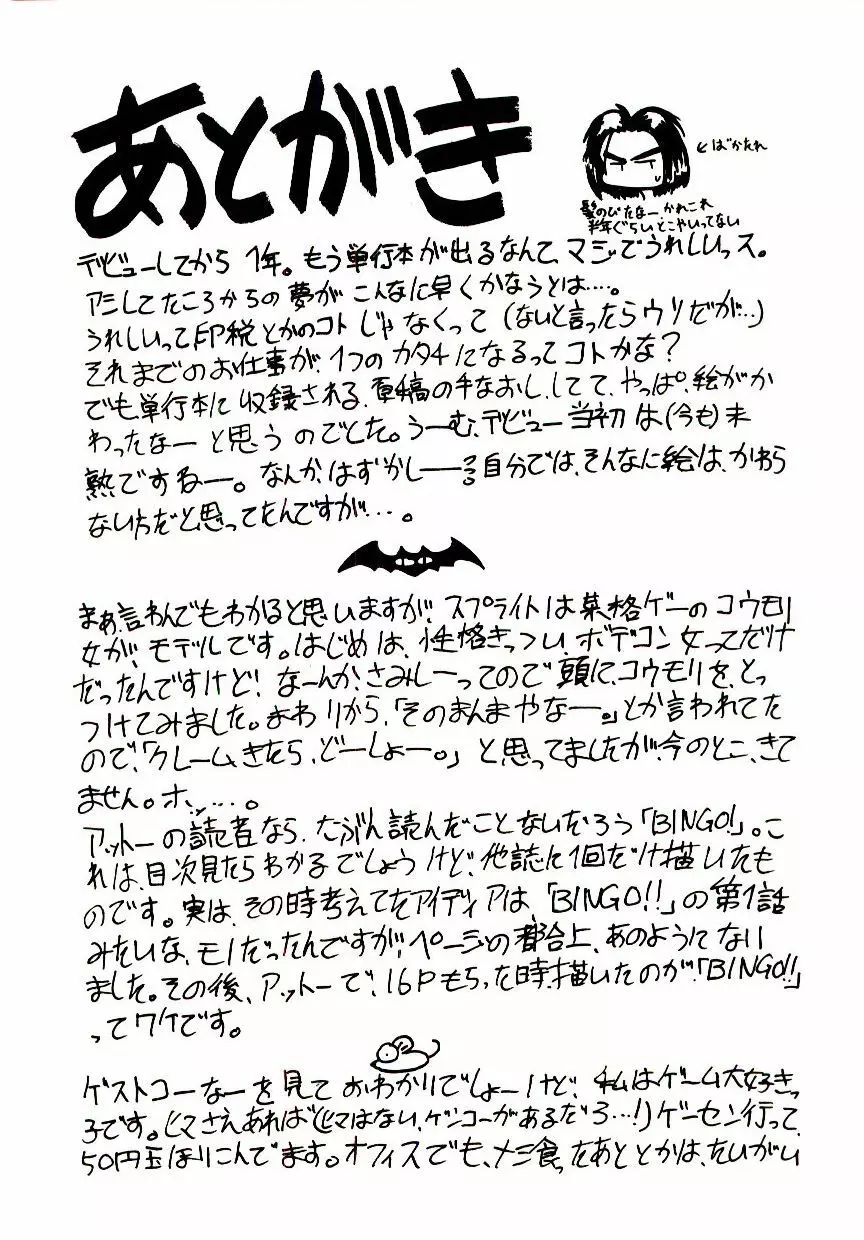 あとがき
←ばかたれ
髪のびたなー、かれこれ
半年ぐらいとこやいってない
デビューしてから1年。もう単行本が出るなんて、マジでうれしいっス。
アシしてたころからの夢がこんなに早くかなうとは…。
うれしいって印税とかのコトじゃなくって(ないと言ったらウソだが…)
それまでのお仕事が、1つのカタチになるってコトかな?
でも、単行本に収録される、原稿の手なおし、してて、やっぱ。絵がか
わったなーと思うのでした。うーむ、デビュー当初は(今も)未
熟ですねー。なんか、はずかしー
自分では、そんなに絵は、かわら
ない方だと思ってたんですが…。
まぁ、言わんでもわかると思いますが、スプライトは某格ゲーのコウモリ
女が、モデルです。はじめは、性格きっつい、ボデコン女ってだけ
だったんですけど、なーんか、さみしーってので頭に、コウモリを、とっ
つけてみました。まわりから、「そのまんまやなー。」とか言われてた
ので、「クレーム、きたら、どーしょー。」と思ってましたが、今のとこ、きて
ません。ホッ…。
アットーの読者なら、たぶん読んだことないだろう「BINGO!」。こ
れは、目次見たらわかるでしょうけど、他誌に1回だけ描いたも
のです。実は、その時考えてたアイディアは、「BINGO!!」の第1話
みたいな、モノだったんですが、ページの都合上、あのようになり
ました。その後、アットーで、16Pもらった時、描いたのが、「BINGO!!」
ってワケです。
ゲストコーなーを見ておわかりでしょーけど、私はゲーム大好きっ
子です。ヒマさえあれば(ヒマはない、ゲンコーがあるだろ…!)ゲーセン行って、
50円玉ほりこんでます。オフィスでも、メシ食ったあととかは、たいがい